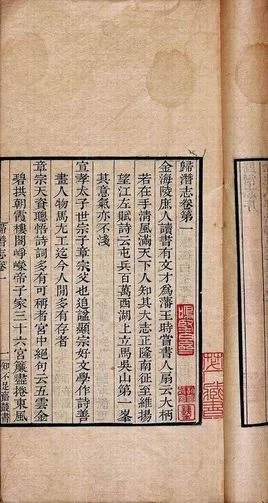 歸潛志卷第一
金海陵庶人讀書有文才爲藩王時嘗書人扇云大柄
若在手清風滿天下人知其大志正隆南征至維揚
望江左賦詩云屯兵百萬西湖上立馬吳山第一峯
其意氣亦不淺
宣孝太子世宗子章宗父也追諡顯宗好文學作詩善
畫人物馬尤工迄今人間多有存者
章宗天資聰悟詩詞多有可稱者宮中絕句云五雲金
碧拱朝霞樓閣崢嶸帝子家三十六宮簾盡捲東風
歸潛志卷一
一
知不足齋叢書